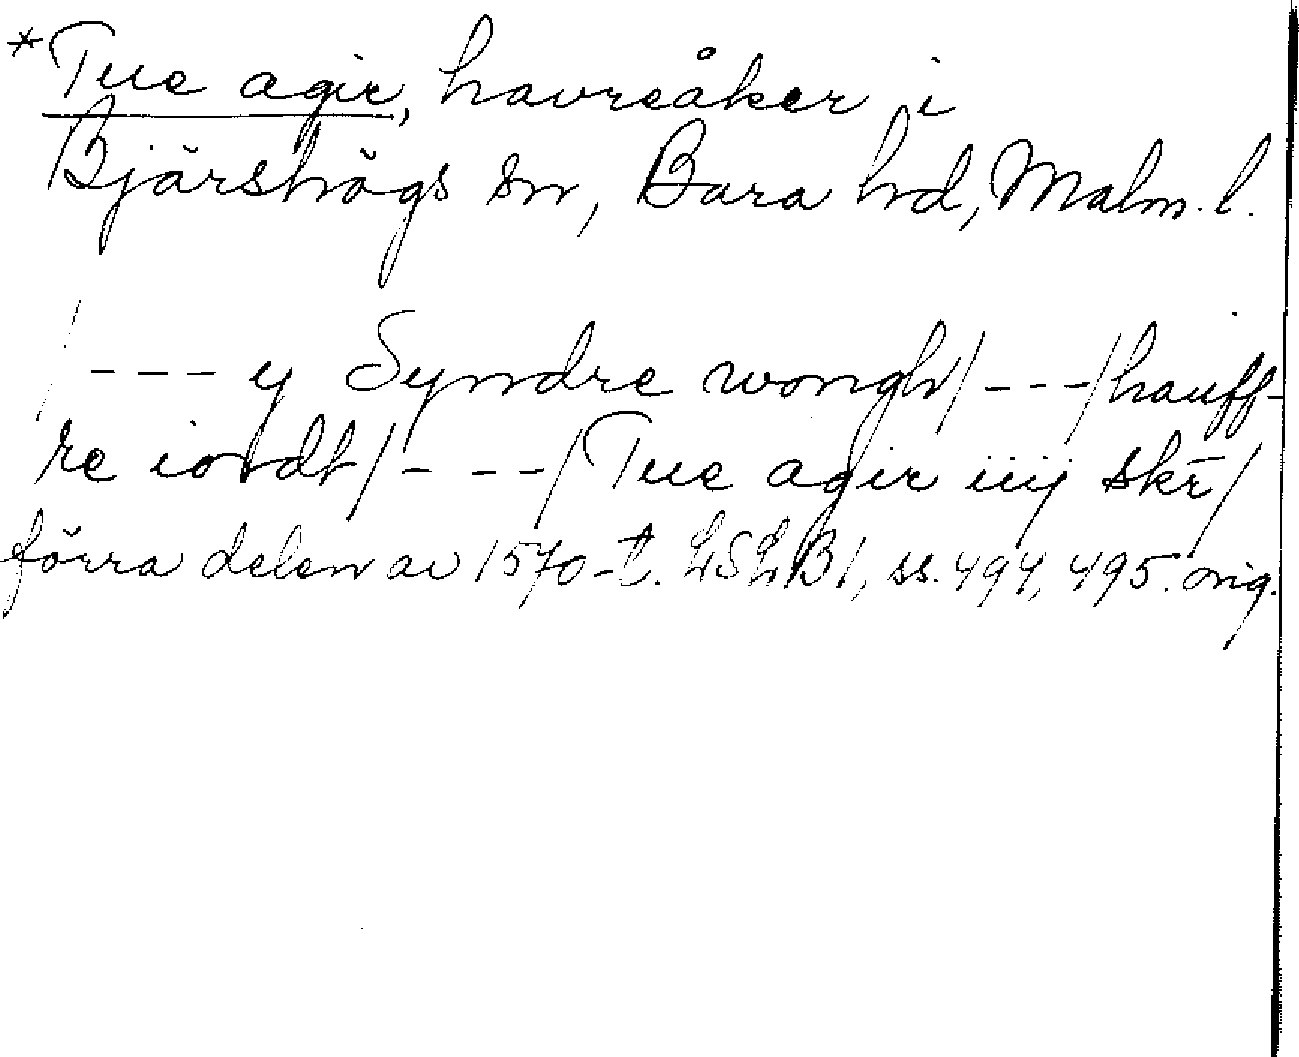 *Tue agir, havreåker i
Bjärshögs sn, Bara hd, Malm. l.
/ - - - y Syndre wongh/ - - - /hauff-
re iordt/ - - - /Tue agir iiij skr̄/
förra delen av 1570-t. LSLB1, ss. 494, 495. orig.